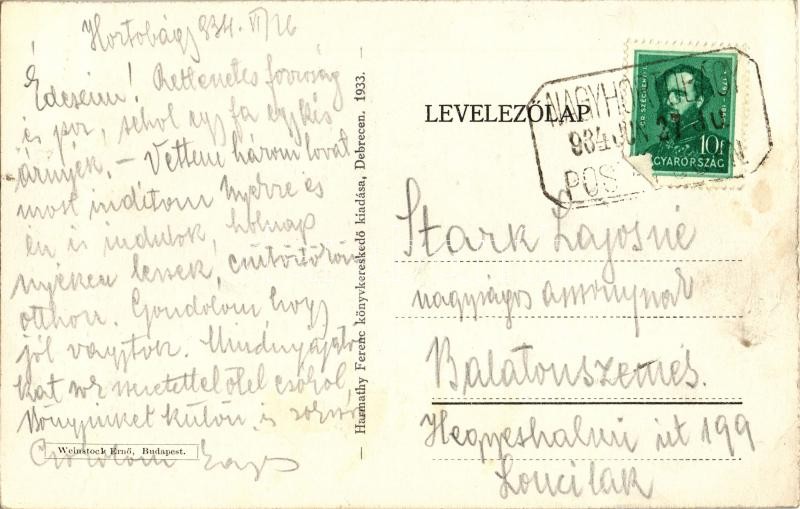 Hortobágy 934. VI/26
Édeseim! Rettenetes forróság
és por, sehol egy fa egy kis
árnyék. – Vettem három lovat
most indítom Nyékre és
én is indulok, holnap
nyéken leszek, csütörtökön
otthon. Gondolom hogy
jól vagytok. Mindnyájato-
kat szeretettel ölel csókol
Könyjinket külön is
Csókolom Lajos
Weinstock Ernő, Budapest.
— Harmathy Ferenc könyvkereskedő kiadása, Debrecen, 1933. —
LEVELEZŐLAP
GR. SZÉCHENYI I.
10f
MAGYARORSZÁG
NAGYHO
934 JUN 27
POS
Stark Lajosné
nagyságos asszonynak
Balatonszemes.
Hegyeshalmi út 199